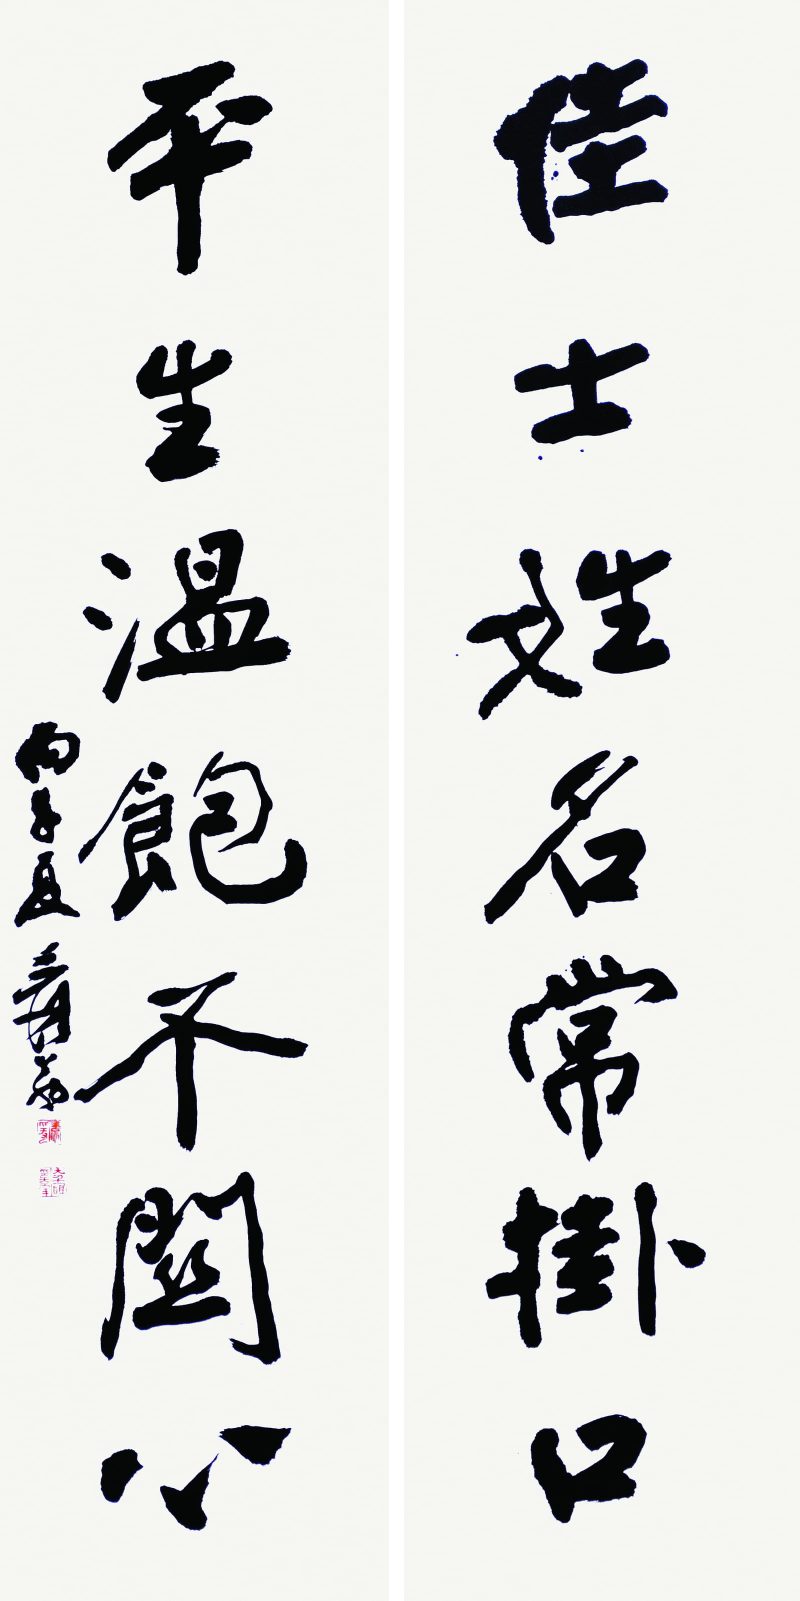 佳士姓名常掛口
平生溫飽不關心
丙子夏 爰翁